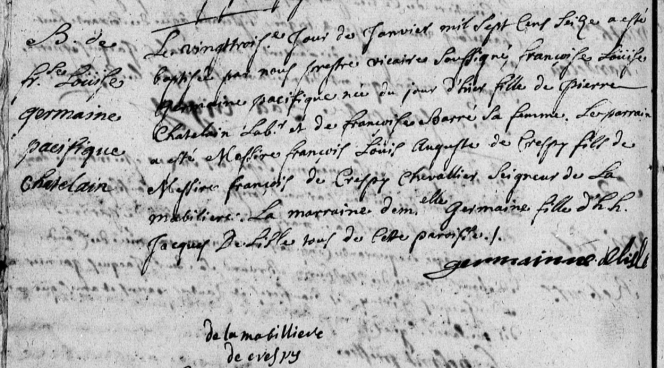 B de
fr.se Loüise
germaine
pacifique
Chatelain
Le vingttrois.e Jour de Janvier mil Sept Cens Seize a este
baptisée par nous prestre vicaire Soussigné françoise Loüise
Germaine pacifique née du jour d'hier fille de pierre
Chatelain Lab.r et de françoise Barré Sa famme. Le parrain
a esté Messire françois Loüis Auguste de Crespy fils de
Messire françois de Crespy Chevallier Seigneur de La
mabiliere. La marraine dem.elle Germaine fille d'h.h.
Jacques De Lisle tous de Cette paroisse./.
germainne delisle
de la mabilliere
de crespy